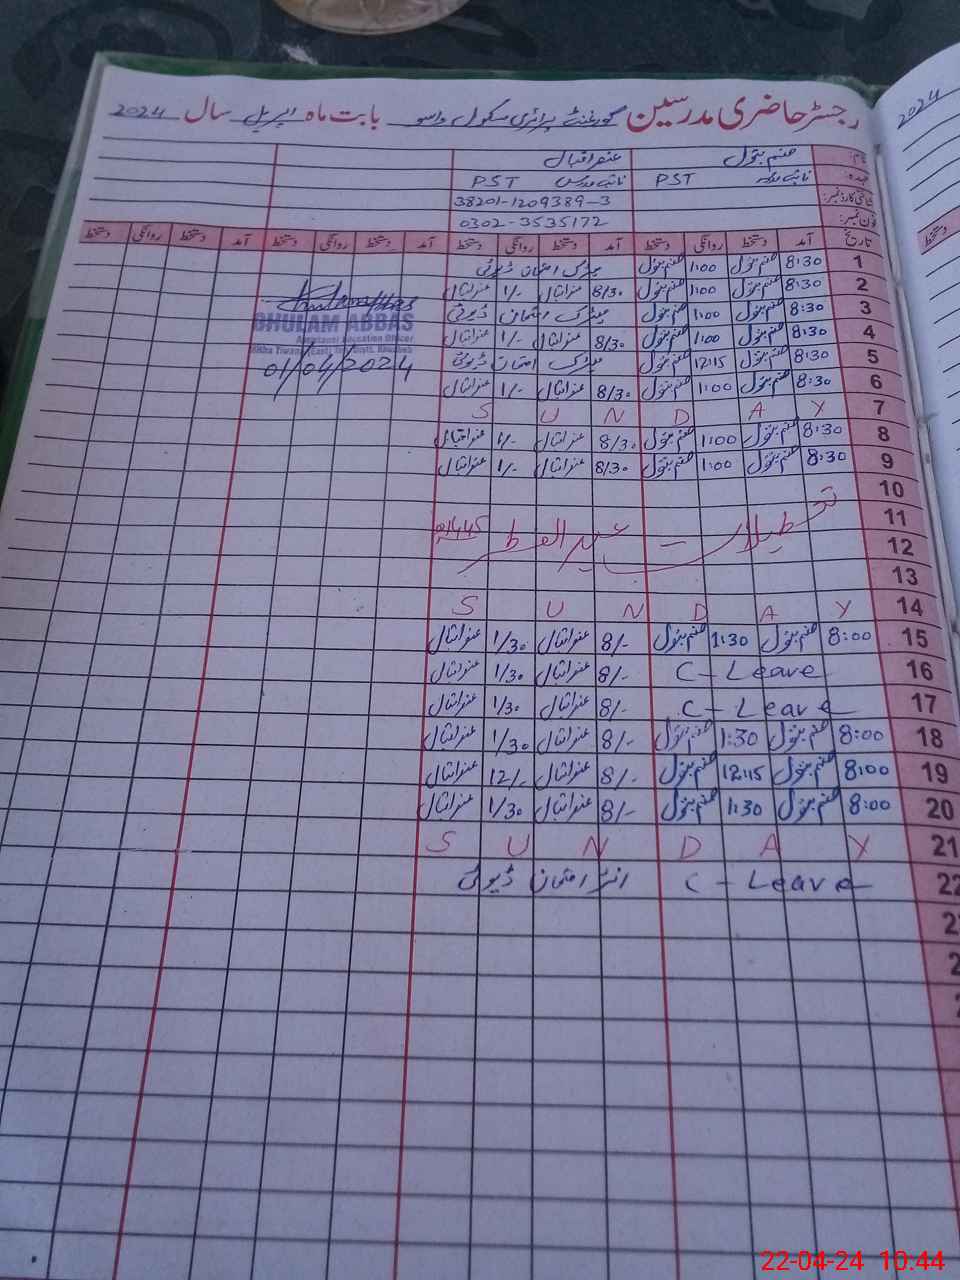 رجسٹر حاضری مدرسین گورنمنٹ پرائمری سکول واسو بابت ماہ اپریل سال 2024
نام: صنم بتول عنصر اقبال
عہدہ: نائب مدرسہ PST نائب مدرس PST
شناختی کارڈ نمبر: 38201-1209389-3
فون نمبر: 0302-3535172
تاریخ آمد دستخط روانگی دستخط آمد دستخط روانگی دستخط آمد دستخط روانگی دستخط آمد دستخط روانگی دستخط
1 8:30 صنم بتول 1:00 صنم بتول میٹرک امتحان ڈیوٹی
2 8:30 صنم بتول 1:00 صنم بتول 8/30 عنصر اقبال 1/- عنصر اقبال
3 8:30 صنم بتول 1:00 صنم بتول میٹرک امتحان ڈیوٹی
4 8:30 صنم بتول 1:00 صنم بتول 8/30 عنصر اقبال 1/- عنصر اقبال
5 8:30 صنم بتول 12:15 صنم بتول میٹرک امتحان ڈیوٹی
6 8:30 صنم بتول 1:00 صنم بتول 8/30 عنصر اقبال 1/- عنصر اقبال
GHULAM ABBAS
Assistant Education Officer
01/04/2024
7 S U N D A Y
8 8:30 صنم بتول 1:00 صنم بتول 8/30 عنصر اقبال 1/- عنصر اقبال
9 8:30 صنم بتول 1:00 صنم بتول 8/30 عنصر اقبال 1/- عنصر اقبال
10
11 تعطیلات عید الفطر 1445ھ
12
13
14 S U N D A Y
15 8:00 صنم بتول 1:30 صنم بتول 8/- عنصر اقبال 1/30 عنصر اقبال
16 C-Leave 8/- عنصر اقبال 1/30 عنصر اقبال
17 C-Leave 8/- عنصر اقبال 1/30 عنصر اقبال
18 8:00 صنم بتول 1:30 صنم بتول 8/- عنصر اقبال 1/30 عنصر اقبال
19 8:00 صنم بتول 12:15 صنم بتول 8/- عنصر اقبال 12/- عنصر اقبال
20 8:00 صنم بتول 1:30 صنم بتول 8/- عنصر اقبال 1/30 عنصر اقبال
21 S U N D A Y
22 C-Leave انٹر امتحان ڈیوٹی
2024
دستخط
22-04-24 10:44